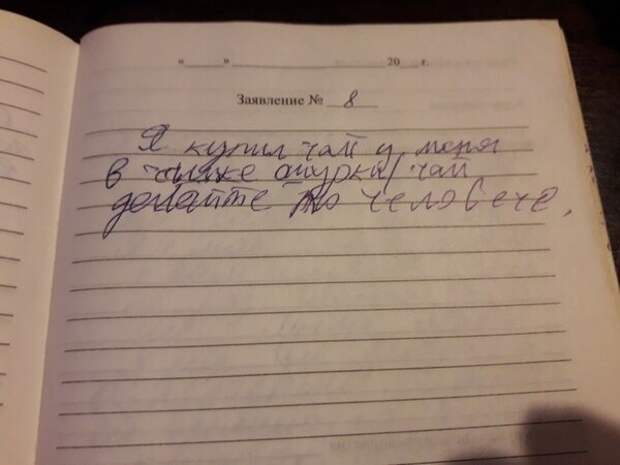 «____» ____________ 20___ г.
Заявление № 8
Я купил чай у меня
в чашке ошурки, чай
делайте по человече.